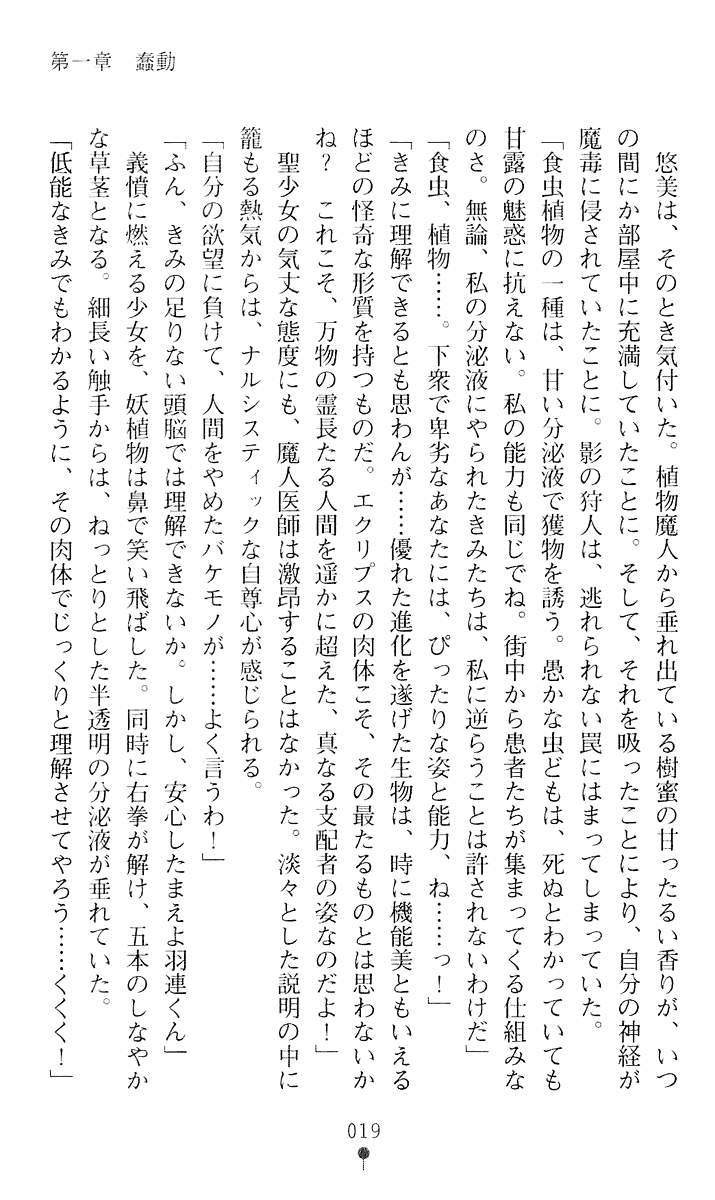 第一章　蠢動
　悠美は、そのとき気付いた。植物魔人から垂れ出ている樹蜜の甘ったるい香りが、いつ
の間にか部屋中に充満していたことに。そして、それを吸ったことにより、自分の神経が
魔毒に侵されていたことに。影の狩人は、逃れられない罠にはまってしまっていた。
「食虫植物の一種は、甘い分泌液で獲物を誘う。愚かな虫どもは、死ぬとわかっていても
甘露の魅惑に抗えない。私の能力も同じでね。街中から患者たちが集まってくる仕組みな
のさ。無論、私の分泌液にやられたきみたちは、私に逆らうことは許されないわけだ」
「食虫、植物……。下衆で卑劣なあなたには、ぴったりな姿と能力、ね……っ！」
「きみに理解できるとも思わんが……優れた進化を遂げた生物は、時に機能美ともいえる
ほどの怪奇な形質を持つものだ。エクリプスの肉体こそ、その最たるものとは思わないか
ね？　これこそ、万物の霊長たる人間を遥かに超えた、真なる支配者の姿なのだよ！」
　聖少女の気丈な態度にも、魔人医師は激昂することはなかった。淡々とした説明の中に
籠もる熱気からは、ナルシスティックな自尊心が感じられる。
「自分の欲望に負けて、人間をやめたバケモノが……よく言うわ！」
「ふん、きみの足りない頭脳では理解できないか。しかし、安心したまえよ羽連くん」
　義憤に燃える少女を、妖植物は鼻で笑い飛ばした。同時に右拳が解け、五本のしなやか
な草茎となる。細長い触手からは、ねっとりとした半透明の分泌液が垂れていた。
「低能なきみでもわかるように、その肉体でじっくりと理解させてやろう……くくく！」
019